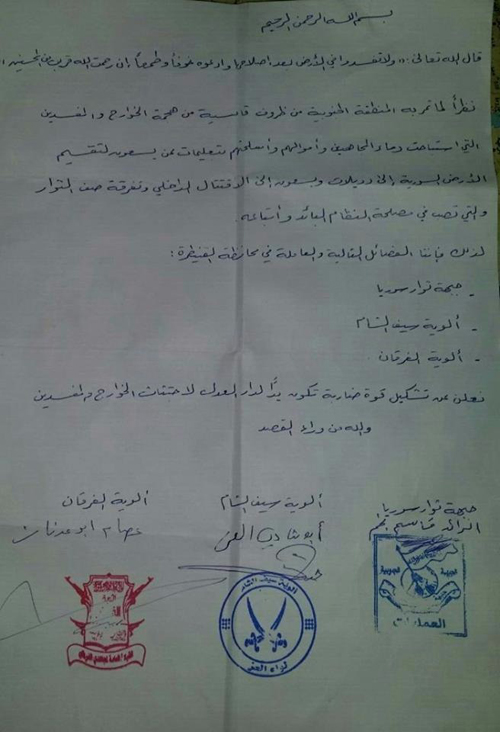 بسم الله الرحمن الرحيم
قال الله تعالى: ولا تفسدوا في الأرض بعد اصلاحها وادعوه خوفاً وطمعاً إن رحمت الله قريب من المحسنين
نظراً لما تمر به المنطقة الجنوبية من ظروف قاسية من همجة الخوارج والمفسدين
التي استباحت دماء المجاهدين وأموالهم وأعملتهم بتعليمات ممن يسعون لتقسيم
الأرض السورية إلى دويلات ويسعون إلى الاقتتال الداخلي وتفرقة صف الثوار
والتي تصب في مصلحة النظام البائد وأتباعه.
لذلك فإننا الفصائل المقاتلة والعاملة في محافظة القنيطرة:
- جبهة ثوار سوريا
- ألوية سيف الشام
- ألوية الفرقان.
نعلن عن تشكيل قوة ضاربة تكون يداً لدار العدل لاجتثاث الخوارج والمفسدين
والله من وراء القصد
جبهة ثوار سوريا
الرائد قاسم نجم
العمليات
ألوية سيف الشام
أبو شادي
ألوية سيف الشام
لواء العز
ألوية الفرقان
عصام ابو عدنان